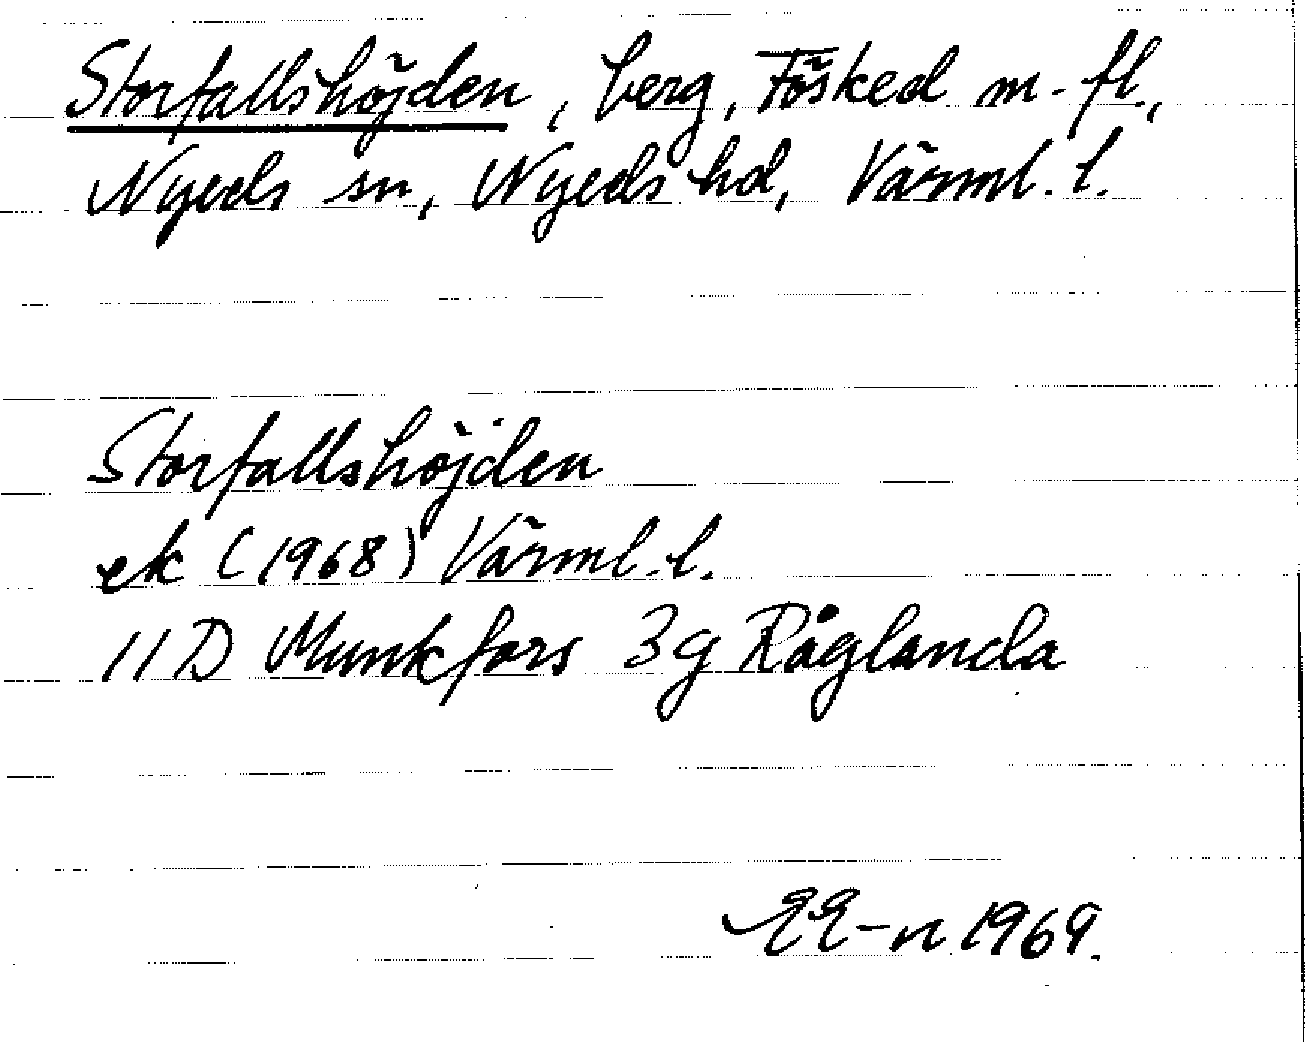 Storfallshöjden, berg, Fösked m. fl.,
Nyeds sn, Nyeds hd, Värml. l.
Storfallshöjden
ek (1968) Värml. l.
11D Munkfors 3g Råglanda
EE-n 1969.